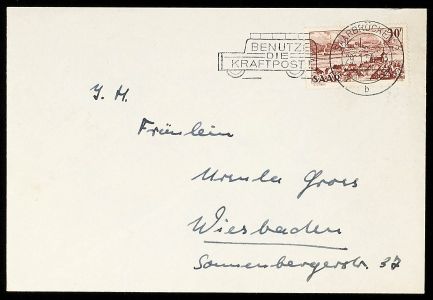 BENUTZE
DIE
KRAFTPOST
SAARBRÜCKEN 2
10F
SAAR
b
J. H.
Fräulein
Ursula Gross
Wiesbaden
Sonnenbergerstr. 37